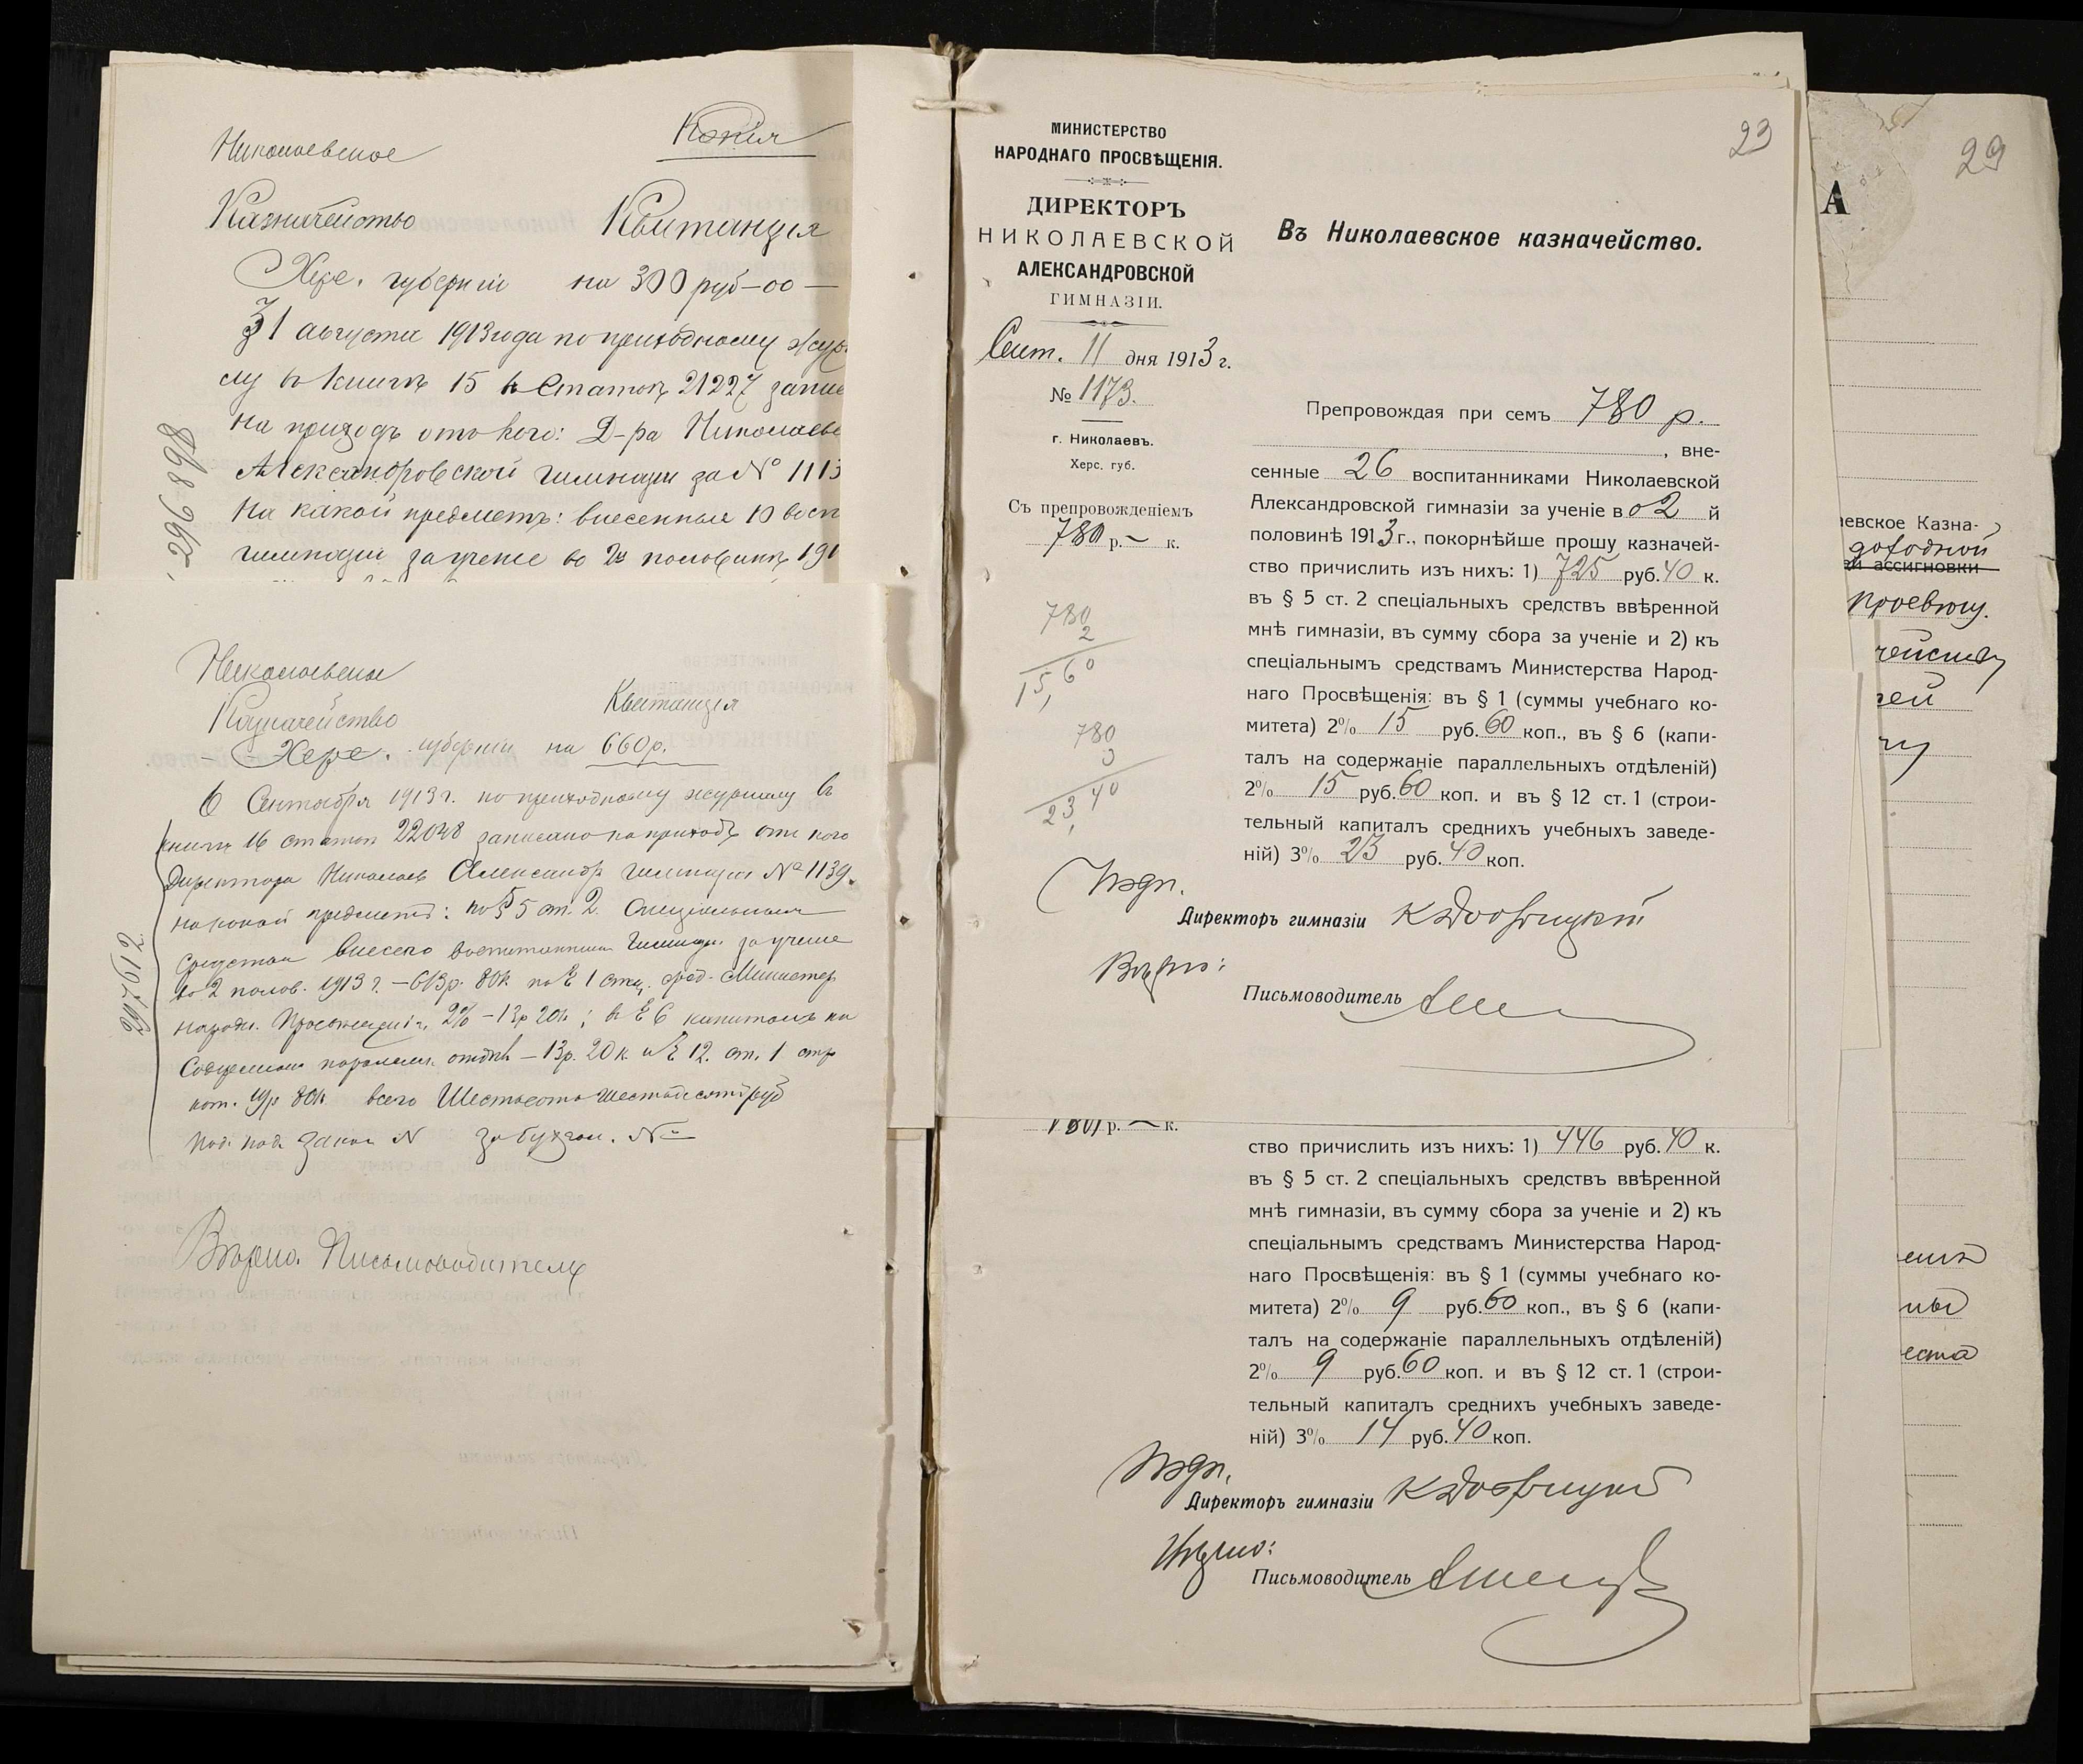 Копія
Николаевское
Казначейство Квитанція
Херс. губерніи на 300 руб-00-
31 августа 1913 года по приходному жур
му въ книгѣ 15 въ Статью 21227 запис
На приходъ отъ кого: Д-ра Николаевс
Александровской гимназіи за № 1113
На какой предметъ: внесенныя 10 восп
гимназіи за ученіе во 2й половинѣ 191
296898
Николаевское
Казначейство Квитанція
Херс. губерніи на 660 р.
6 Сентября 1913 г. по приходному журналу въ
книгѣ 16 статью 22048 записано на приходъ отъ кого
Директора Николаев Александр гимназіи № 1139.
на какой предметъ: по § 5 ст. 2 Спеціальныхъ
средствъ внесено воспитанниками гимназіи за ученіе
во 2 полов. 1913 г. - 613 р. 80 к. по § 1 спец. сред. Министер
народн. Просвѣщенія 2% - 13 р 20 к; въ § 6 капиталъ на
Содержаніе параллел. отдѣл - 13 р. 20 к. и § 12. ст. 1 стр
кап. 19 р 80 к всего Шестьсотъ шестьдесятъ руб
297612
Вѣрно. Письмоводитель
МИНИСТЕРСТВО
НАРОДНАГО ПРОСВѢЩЕНІЯ.
ДИРЕКТОРЪ
НИКОЛАЕВСКОЙ
АЛЕКСАНДРОВСКОЙ
ГИМНАЗІИ.
Сент. 11 дня 1913 г.
№ 1173.
г. Николаевъ.
Херс. губ.
Съ препровожденіемъ
780 р. — к.
780
2
15,60
780
3
23,40
23
Въ Николаевское казначейство.
Препровождая при семъ 780 р.
, вне-
сенные 26 воспитанниками Николаевской
Александровской гимназіи за ученіе во 2 й
половинѣ 1913 г., покорнѣйше прошу казначей-
ство причислить изъ нихъ: 1) 725 руб. 40 к.
въ § 5 ст. 2 спеціальныхъ средствъ ввѣренной
мнѣ гимназіи, въ сумму сбора за ученіе и 2) къ
спеціальнымъ средствамъ Министерства Народ-
наго Просвѣщенія: въ § 1 (суммы учебнаго ко-
митета) 2% 15 руб. 60 коп., въ § 6 (капи-
талъ на содержаніе параллельныхъ отдѣленій)
2% 15 руб. 60 коп. и въ § 12 ст. 1 (строи-
тельный капиталъ среднихъ учебныхъ заведе-
ній) 3% 23 руб. 40 коп.
Подп.
Директоръ гимназіи
Вѣрно:
Письмоводитель
р. — к.
ство причислить изъ нихъ: 1) 446 руб. 40 к.
въ § 5 ст. 2 спеціальныхъ средствъ ввѣренной
мнѣ гимназіи, въ сумму сбора за ученіе и 2) къ
спеціальнымъ средствамъ Министерства Народ-
наго Просвѣщенія: въ § 1 (суммы учебнаго ко-
митета) 2% 9 руб. 60 коп., въ § 6 (капи-
талъ на содержаніе параллельныхъ отдѣленій)
2% 9 руб. 60 коп. и въ § 12 ст. 1 (строи-
тельный капиталъ среднихъ учебныхъ заведе-
ній) 3% 14 руб. 40 коп.
Подп.
Директоръ гимназіи
Вѣрно:
Письмоводитель
29
А
аевское Казна-
доходной
ей ассигновки